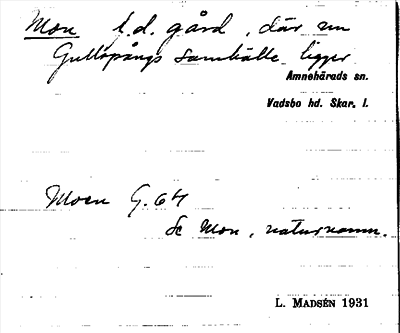 Mon f.d. gård, där nu
Gullspångs samhälle ligger
Amnehärads sn.
Vadsbo hd. Skar. l.
Moen G.64
Se Mon, naturnamn.
L. MADSÉN 1931